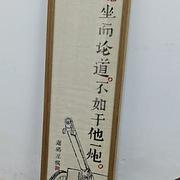 坐而论道不如干他一炮